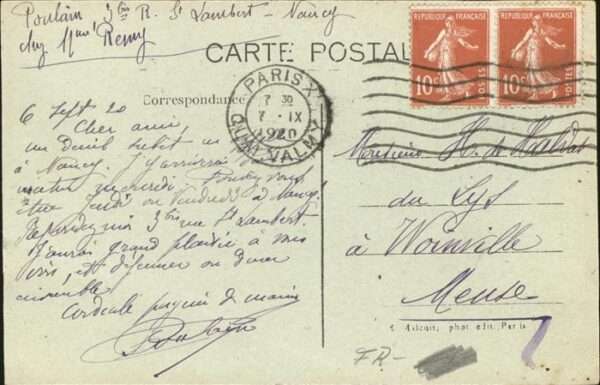 Poulain 3bis R. St Lambert - Nancy
chez Mme Remy
CARTE POSTAL
REPUBLIQUE FRANÇAISE
10c
POSTES
REPUBLIQUE FRANÇAISE
10c
POSTES
PARIS X
7 30
7 - IX
1920
VALMY
Correspondance
6 Sept 20
Cher ami,
un
à Nancy. J'arriverai
mercredi. Pouvez vous
être Jeudi ou Vendredi à Nancy?
Répondez moi 3bis rue St Lambert.
J'aurai grand plaisir à vous
voir, et déjeuner ou diner
ensemble
Cordiale poignée de mains
Poulain
Monsieur H. de
du Lys
à Woinville
Meuse
phot. edit. Paris
FR-